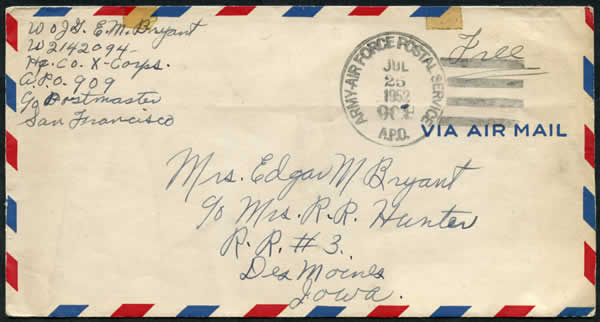 W O J.G. E.M. Bryant
W2142094-
Hq. Co. X-Corps.
A.P.O. 909
c/o Postmaster
San Francisco
ARMY-AIR FORCE POSTAL SERVICE
JUL
25
1952
909
A.P.O.
Free
VIA AIR MAIL
Mrs. Edgar M Bryant
c/o Mrs. R.R. Hunter
R.R. #3.
Des Moines
Iowa.